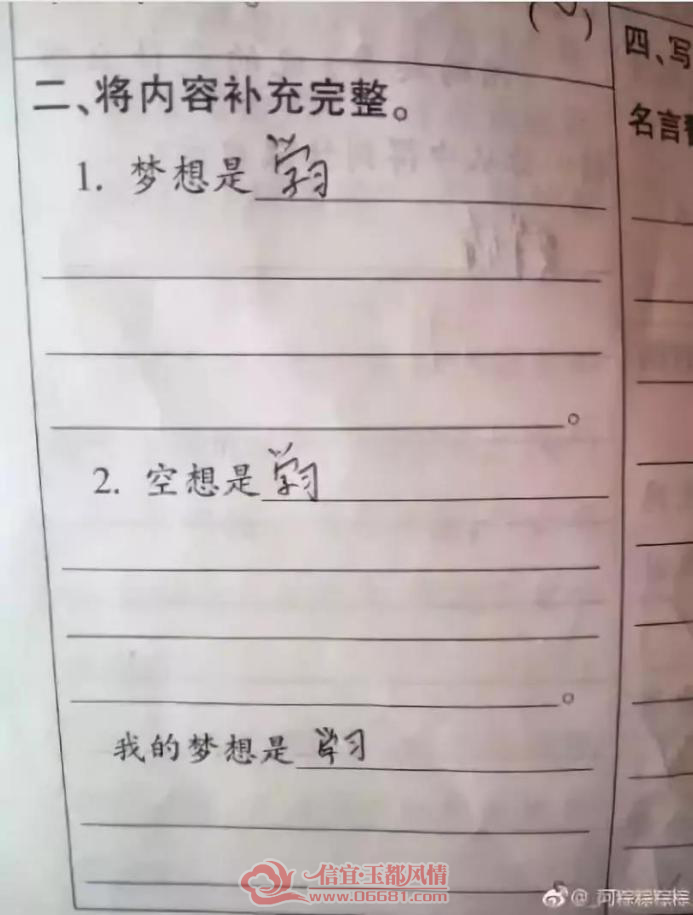 四、写
二、将内容补充完整。
名言
1. 梦想是学习
。
2. 空想是学习
。
我的梦想是学习
信宜·玉都风情
www.06681.com
@河粽粽粽粽